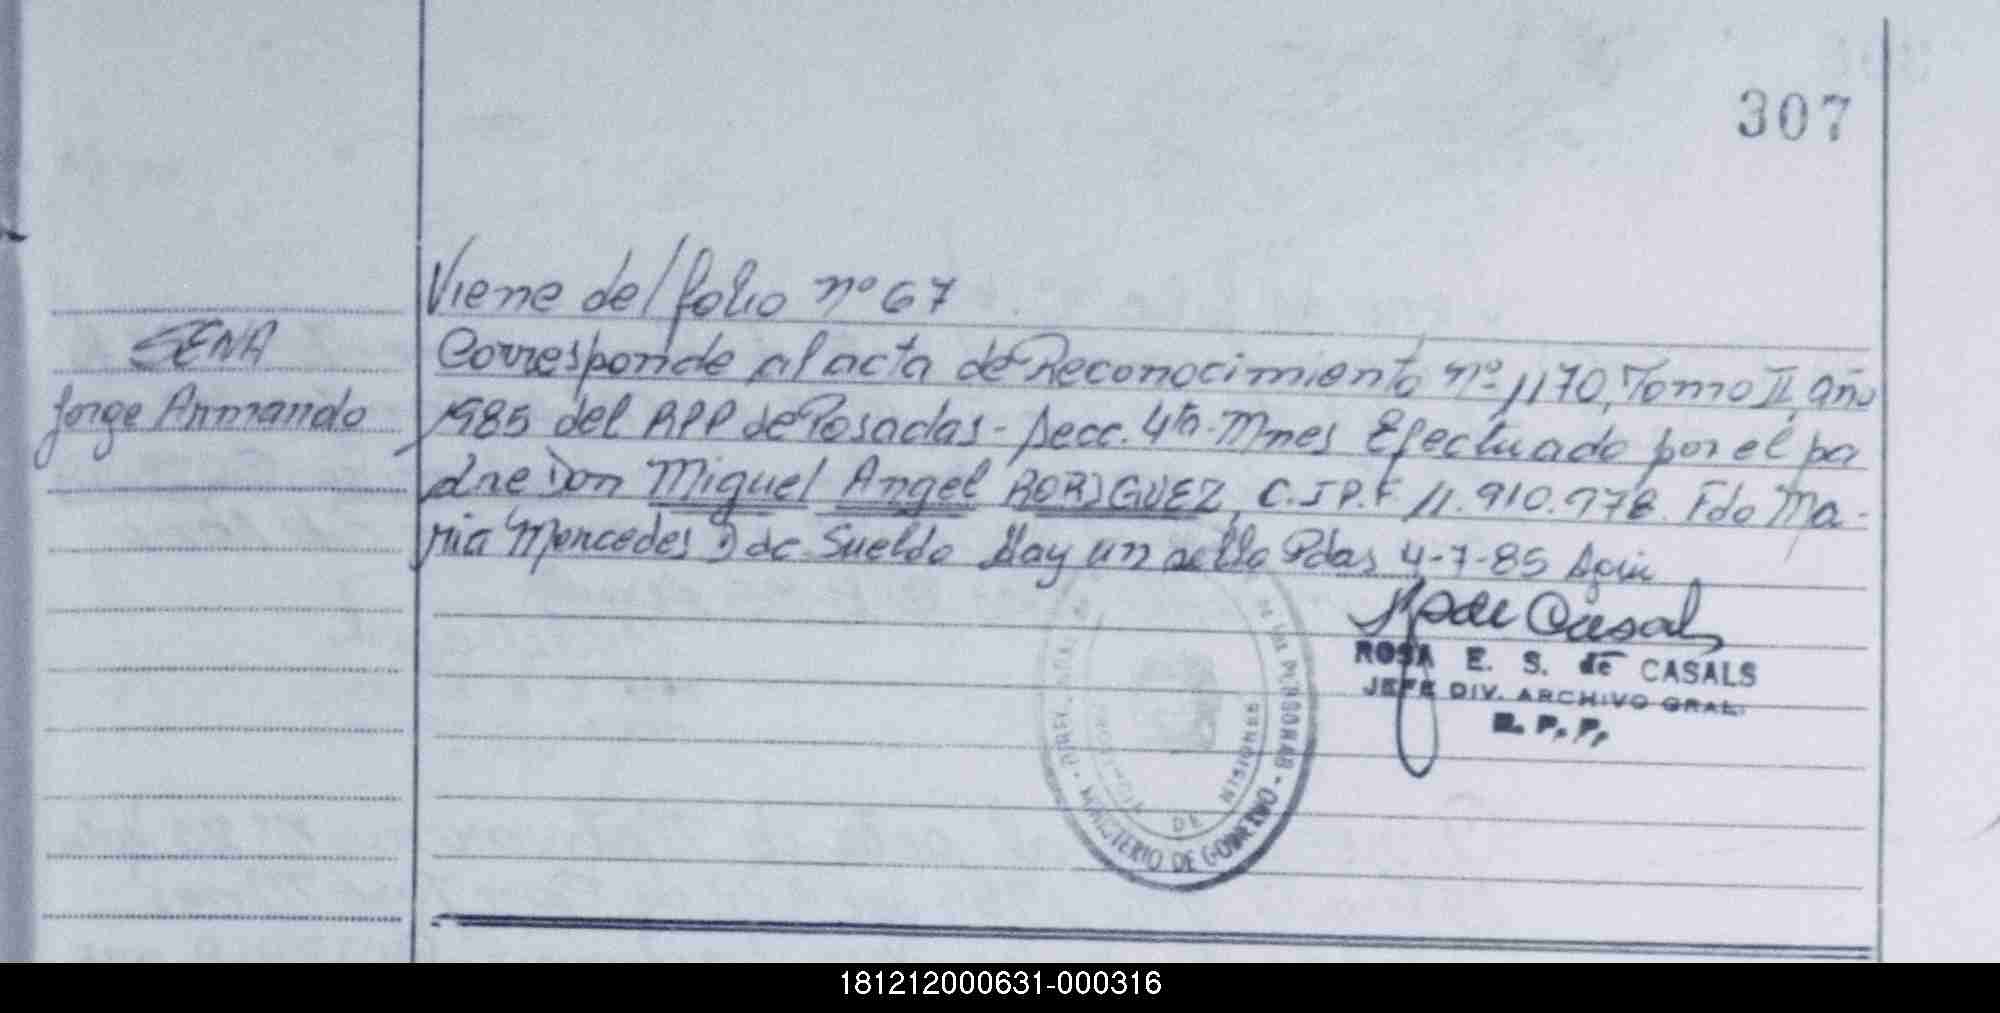 307
Viene del folio nº 67
SENA
Jorge Armando
Corresponde al acta de Reconocimiento nº 1170, Tomo II, año
1985 del RPP de Posadas - Secc. 4ta. Mnes Efectuado por el pa
dre Don Miguel Angel RORIGUEZ, C.I P.F 11.910.778. Fdo Ma-
ria Mercedes D de Sueldo Hay un sello Pdas 4-7-85
de Casals
ROSA E. S. de CASALS
JEFE DIV. ARCHIVO GRAL.
R. P. P.
DE LAS PERSONAS - MINISTERIO DE GOBIERNO -
DE MISIONES
181212000631-000316